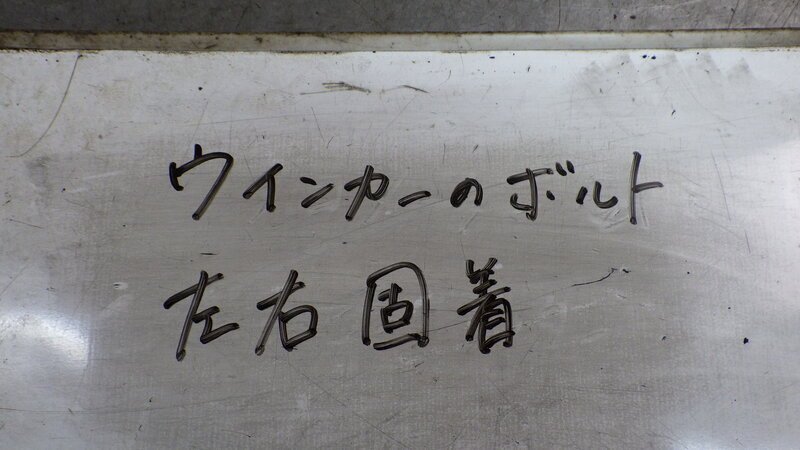 ウインカーのボルト
左右固着